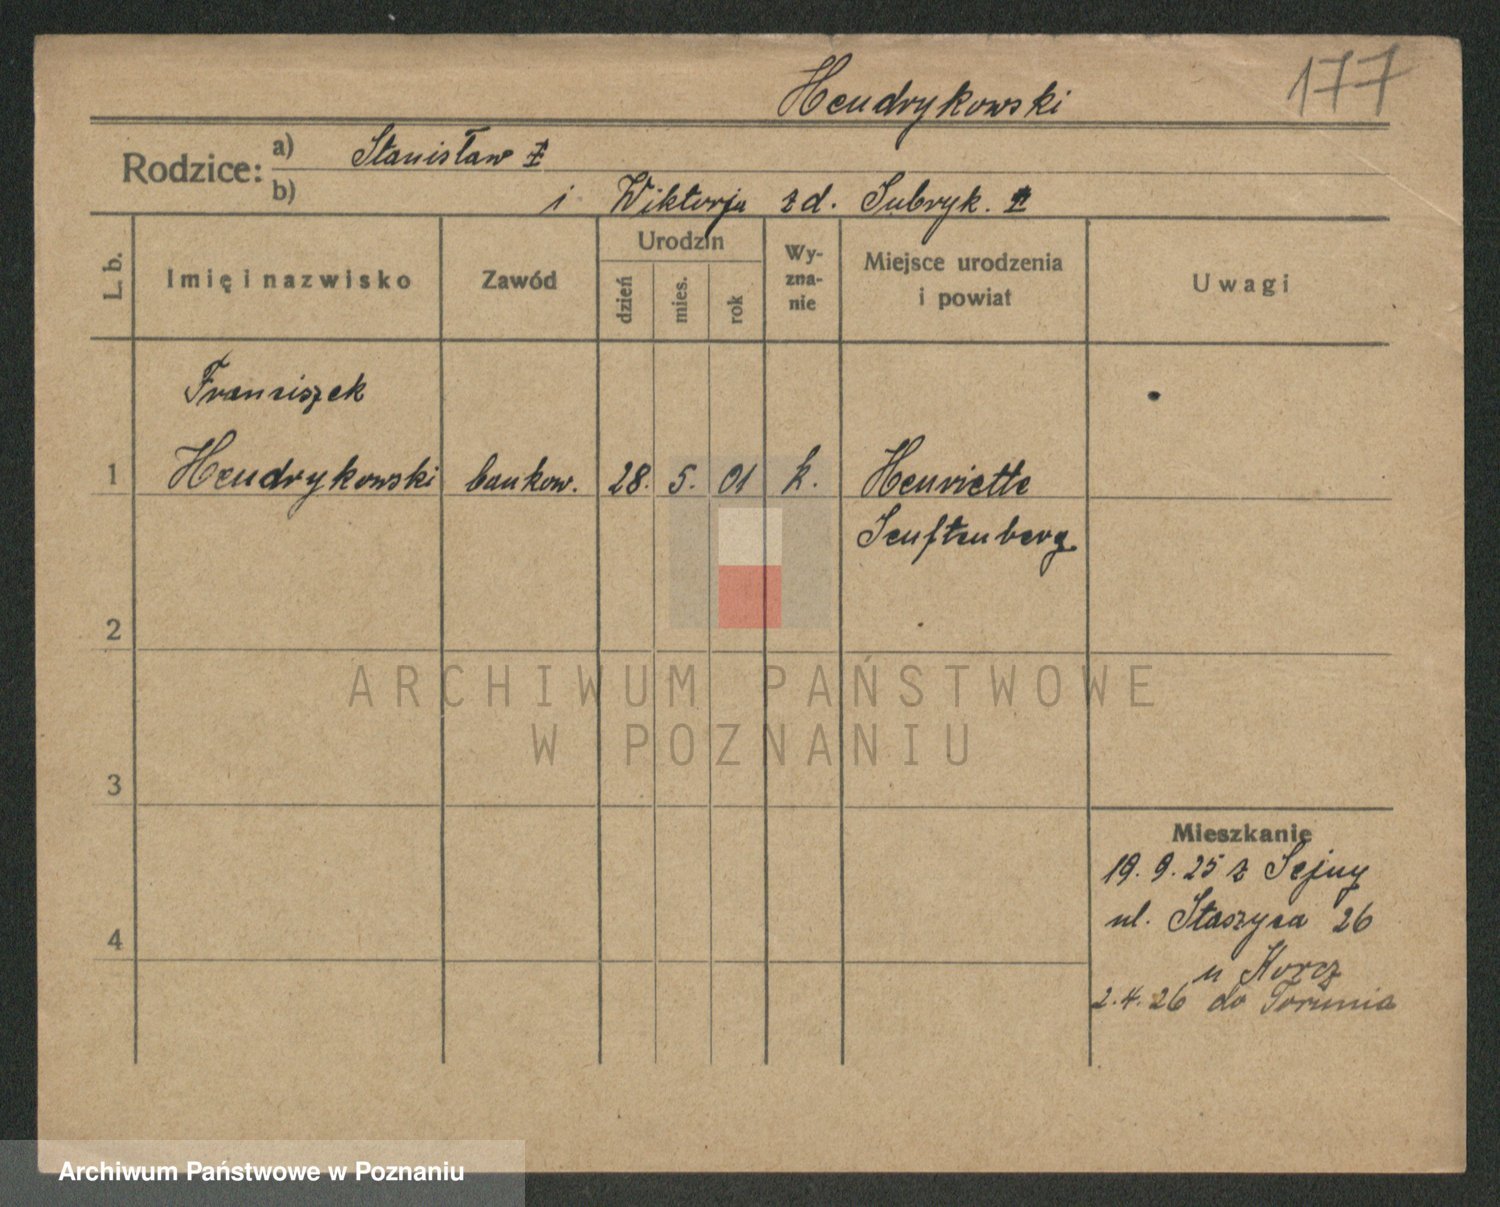 177
Hendrykowski
Rodzice:
a) Stanisław
b) i Wiktorja z d. Subryk.
L. b.
Imię i nazwisko
Zawód
Urodzin
dzień
mies.
rok
Wy-
zna-
nie
Miejsce urodzenia
i powiat
Uwagi
Franciszek
1 Hendrykowski bankow. 28. 5. 01 k. Henriette
Senftenberg
2
3
4
Mieszkanie
19. 9. 25 z Sejny
ul. Staszyca 26
u Korcz
2. 4. 26 do Torunia
ARCHIWUM PAŃSTWOWE
W POZNANIU
Archiwum Państwowe w Poznaniu